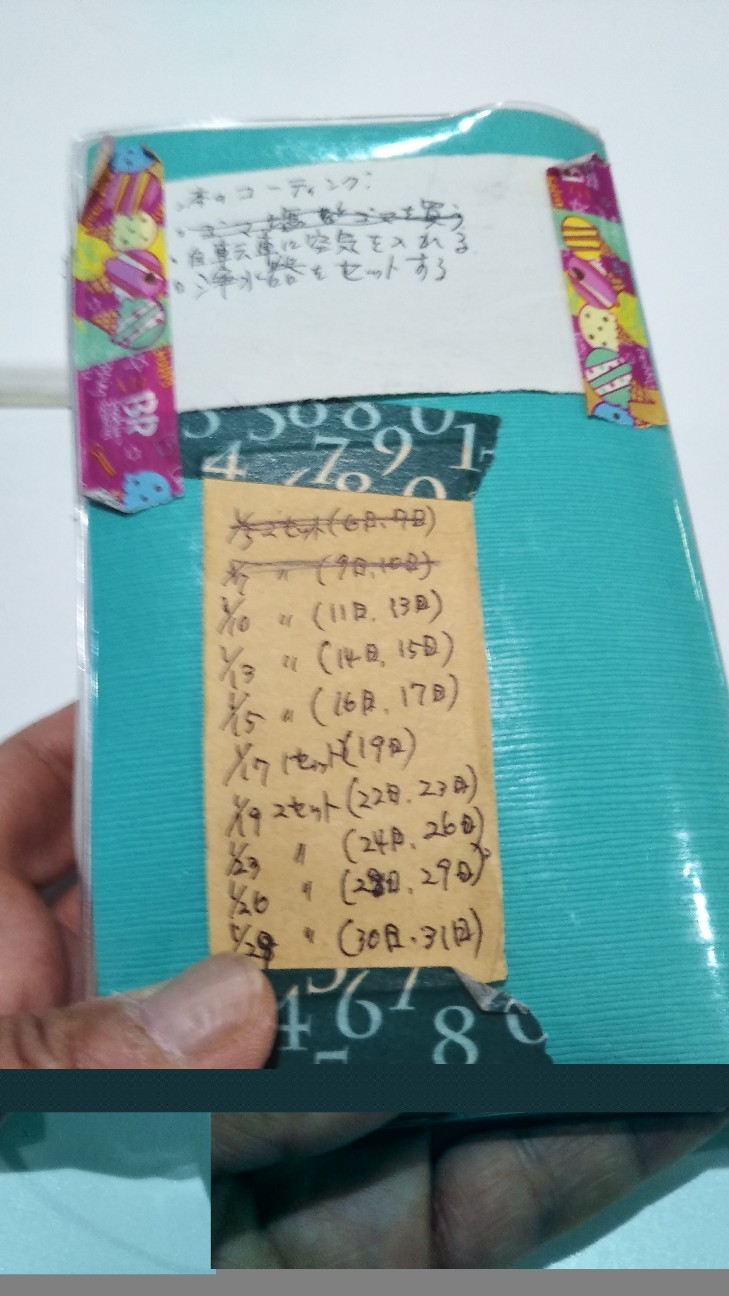 ・本のコーティング:
を買う
・自転車に空気を入れる
・浄水器をセットする
BR
5 3 6 8 0
4 7 9 1
8 0
1/5 2セット(6日、7日)
1/7 〃 (9日、10日)
1/10 〃 (11日、13日)
1/13 〃 (14日、15日)
1/15 〃 (16日、17日)
1/17 1セット(19日)
1/19 2セット(22日、23日)
1/23 〃 (24日、26日)
1/26 〃 (28日、29日)
1/29 〃 (30日・31日)
5 7
4 6 8